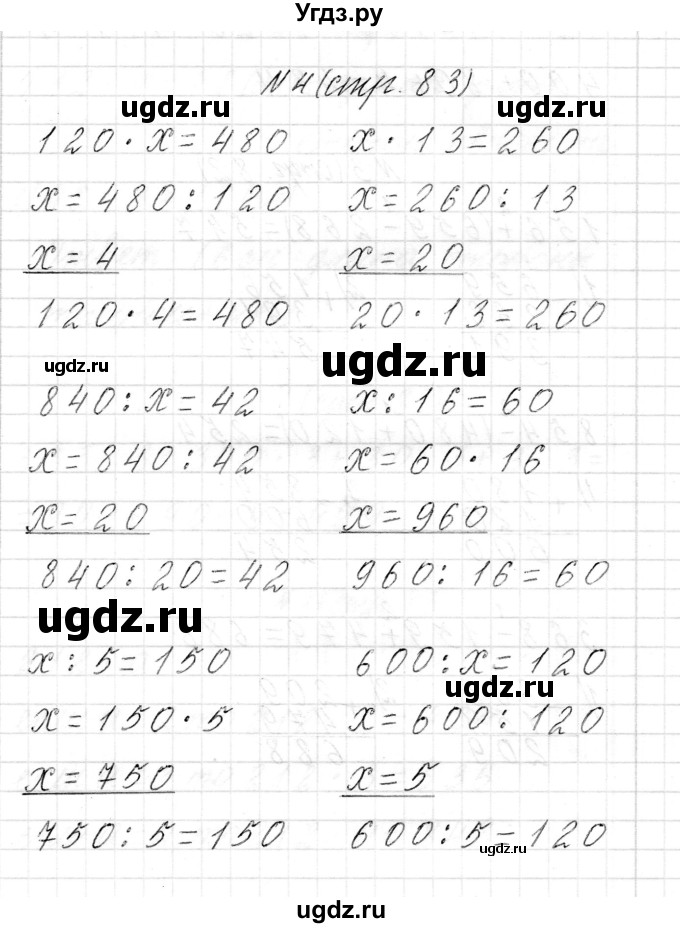 Угдз.ру
N 4 (стр. 83)
ugdz.ru ugdz.ru
120 · x = 480 x · 13 = 260
x = 480 : 120 x = 260 : 13
x = 4 x = 20
120 · 4 = 480 20 · 13 = 260
ugdz.ru ugdz.ru
840 : x = 42 x : 16 = 60
x = 840 : 42 x = 60 · 16
x = 20 x = 960
840 : 20 = 42 960 : 16 = 60
ugdz.ru
x : 5 = 150 600 : x = 120
ugdz.ru
x = 150 · 5 x = 600 : 120
x = 750 x = 5
750 : 5 = 150 600 : 5 = 120
ugdz.ru
ugdz.ru